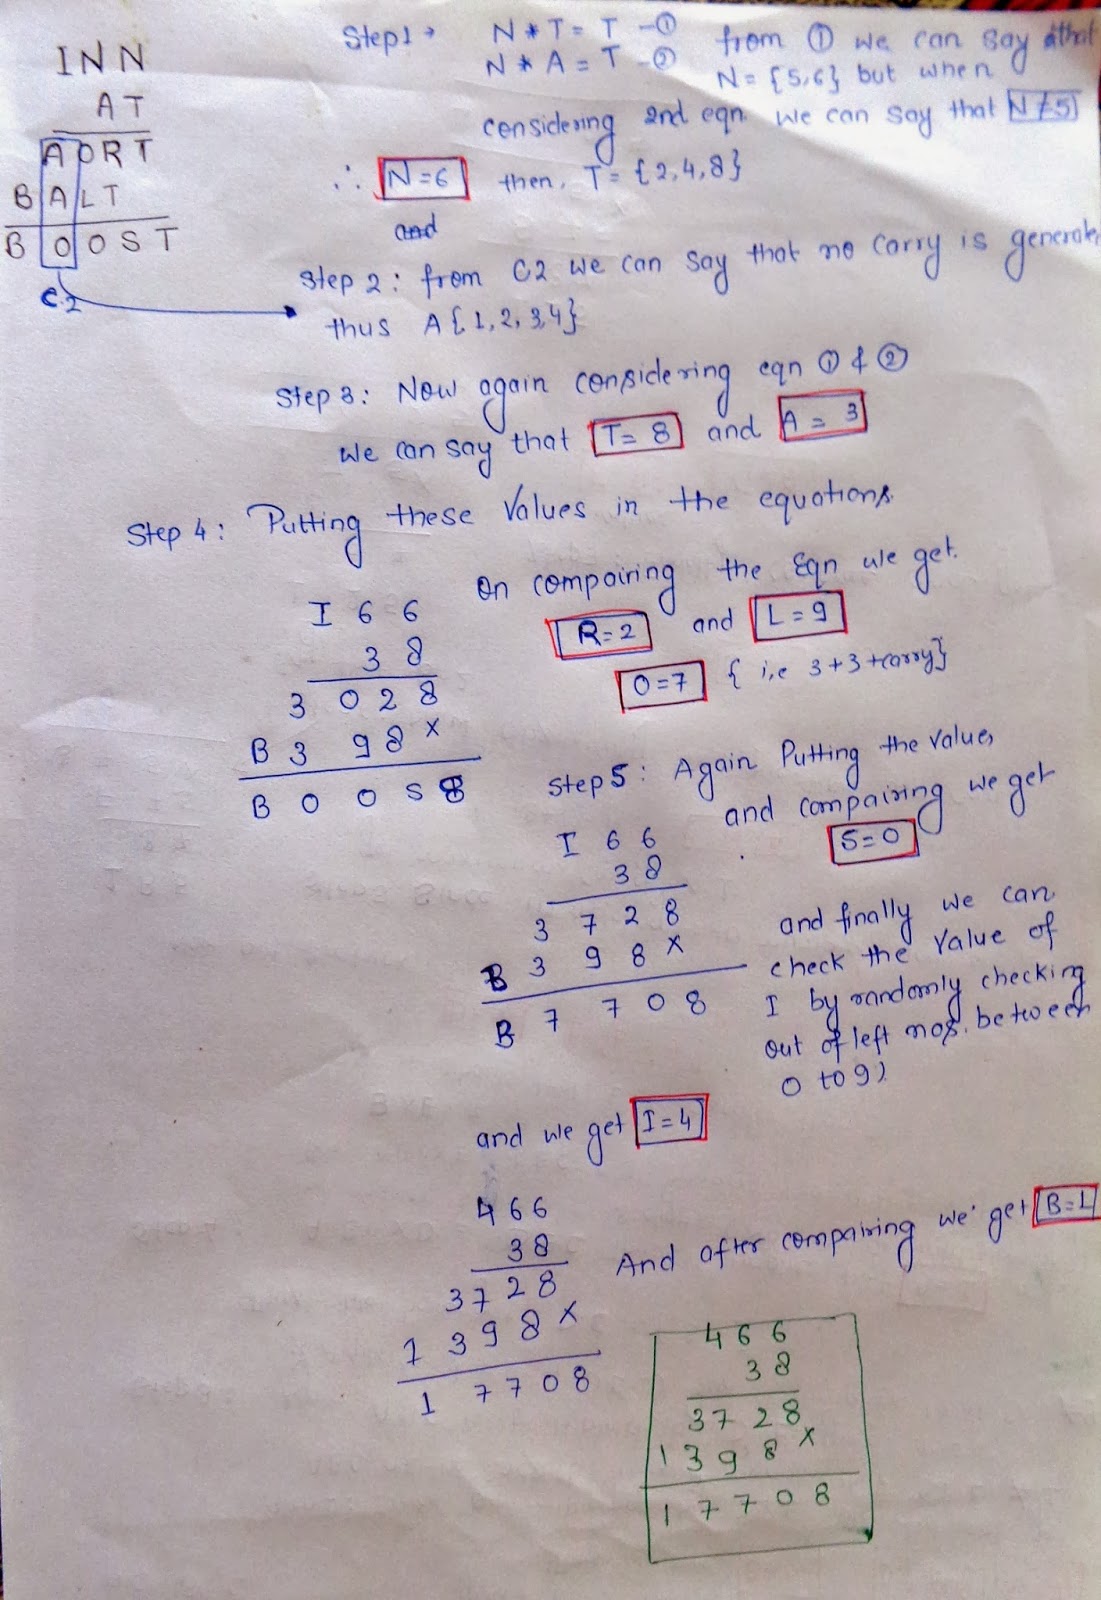 INN
AT
AORT
BALT
BOOST
C.2
Step1 → N * T = T -①
N * A = T -②
from ① we can say that
N = {5,6} but when
considering 2nd eqn. we can say that N≠5
∴ N=6 then, T = {2,4,8}
and
Step 2: from C2 we can say that no carry is generate,
thus A{1,2,3,4}
Step 3: Now again considering eqn ① & ②
we can say that T= 8 and A = 3
Step 4: Putting these values in the equations.
On compairing the Eqn we get.
R=2 and L=9
O=7 { i,e 3+3+carry}
I 6 6
3 8
3 O 2 8
B 3 9 8 x
B O O S 8
Step 5: Again Putting the value,
and compairing we get
S=0
I 6 6
3 8
3 7 2 8
B 3 9 8 x
B 7 7 0 8
and finally we can
check the value of
I by randomly checking
out of left nos. between
0 to 9)
and we get I=4
4 6 6
3 8
3 7 2 8
1 3 9 8 x
1 7 7 0 8
And after compairing we get B=1
4 6 6
3 8
3 7 2 8
1 3 9 8 x
1 7 7 0 8